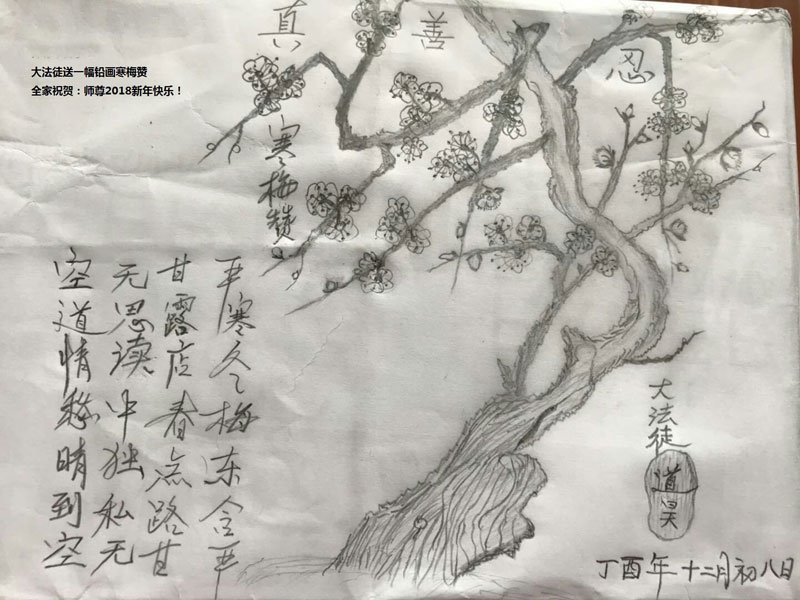 大法徒送一幅铅画寒梅赞
全家祝贺：师尊2018新年快乐！
真 善 忍
寒梅赞
严寒冬梅冻含严
甘露店春点路甘
无思读中独私无
空道情愁晴到空
大法徒
道昊
丁酉年十二月初八日